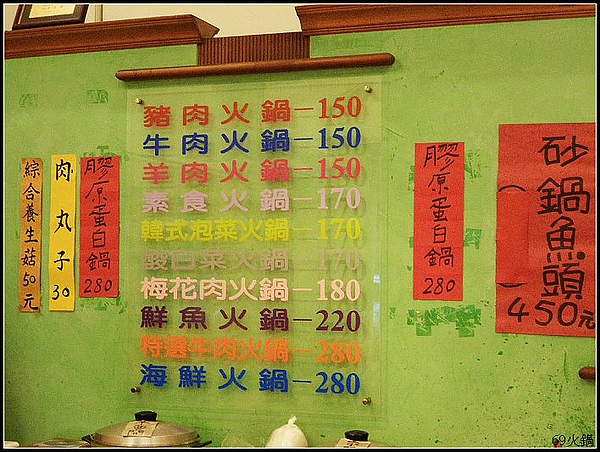 綜合養生菇50元
肉丸子30
膠原蛋白鍋280
豬肉火鍋－150
牛肉火鍋－150
羊肉火鍋－150
素食火鍋－170
韓式泡菜火鍋－170
酸白菜火鍋－170
梅花肉火鍋－180
鮮魚火鍋－220
特選牛肉火鍋－280
海鮮火鍋－280
膠原蛋白鍋280
砂鍋魚頭
450元
69火鍋